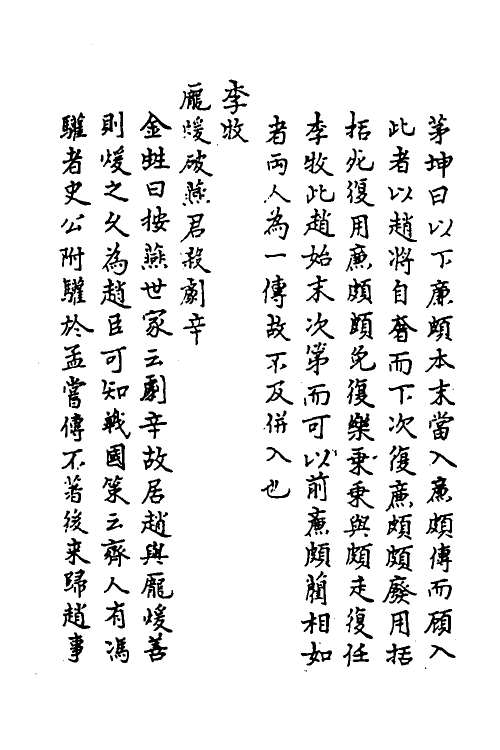 茅坤曰以下廉頗本末當入廉頗傳而顧入
此者以趙將自奢而下次復廉頗頗廢用括
括死復用廉頗頗免復樂乗乗與頗走復任
李牧此趙始末次第而可以前廉頗藺相如
者兩人為一傳故不及併入也
李牧
龎煖破燕君殺劇辛
金甡曰按燕世家云劇辛故居趙與龎煖善
則煖之久為趙臣可知戰國策云齊人有馮
驩者史公附驩於孟嘗傳不著後来歸趙事